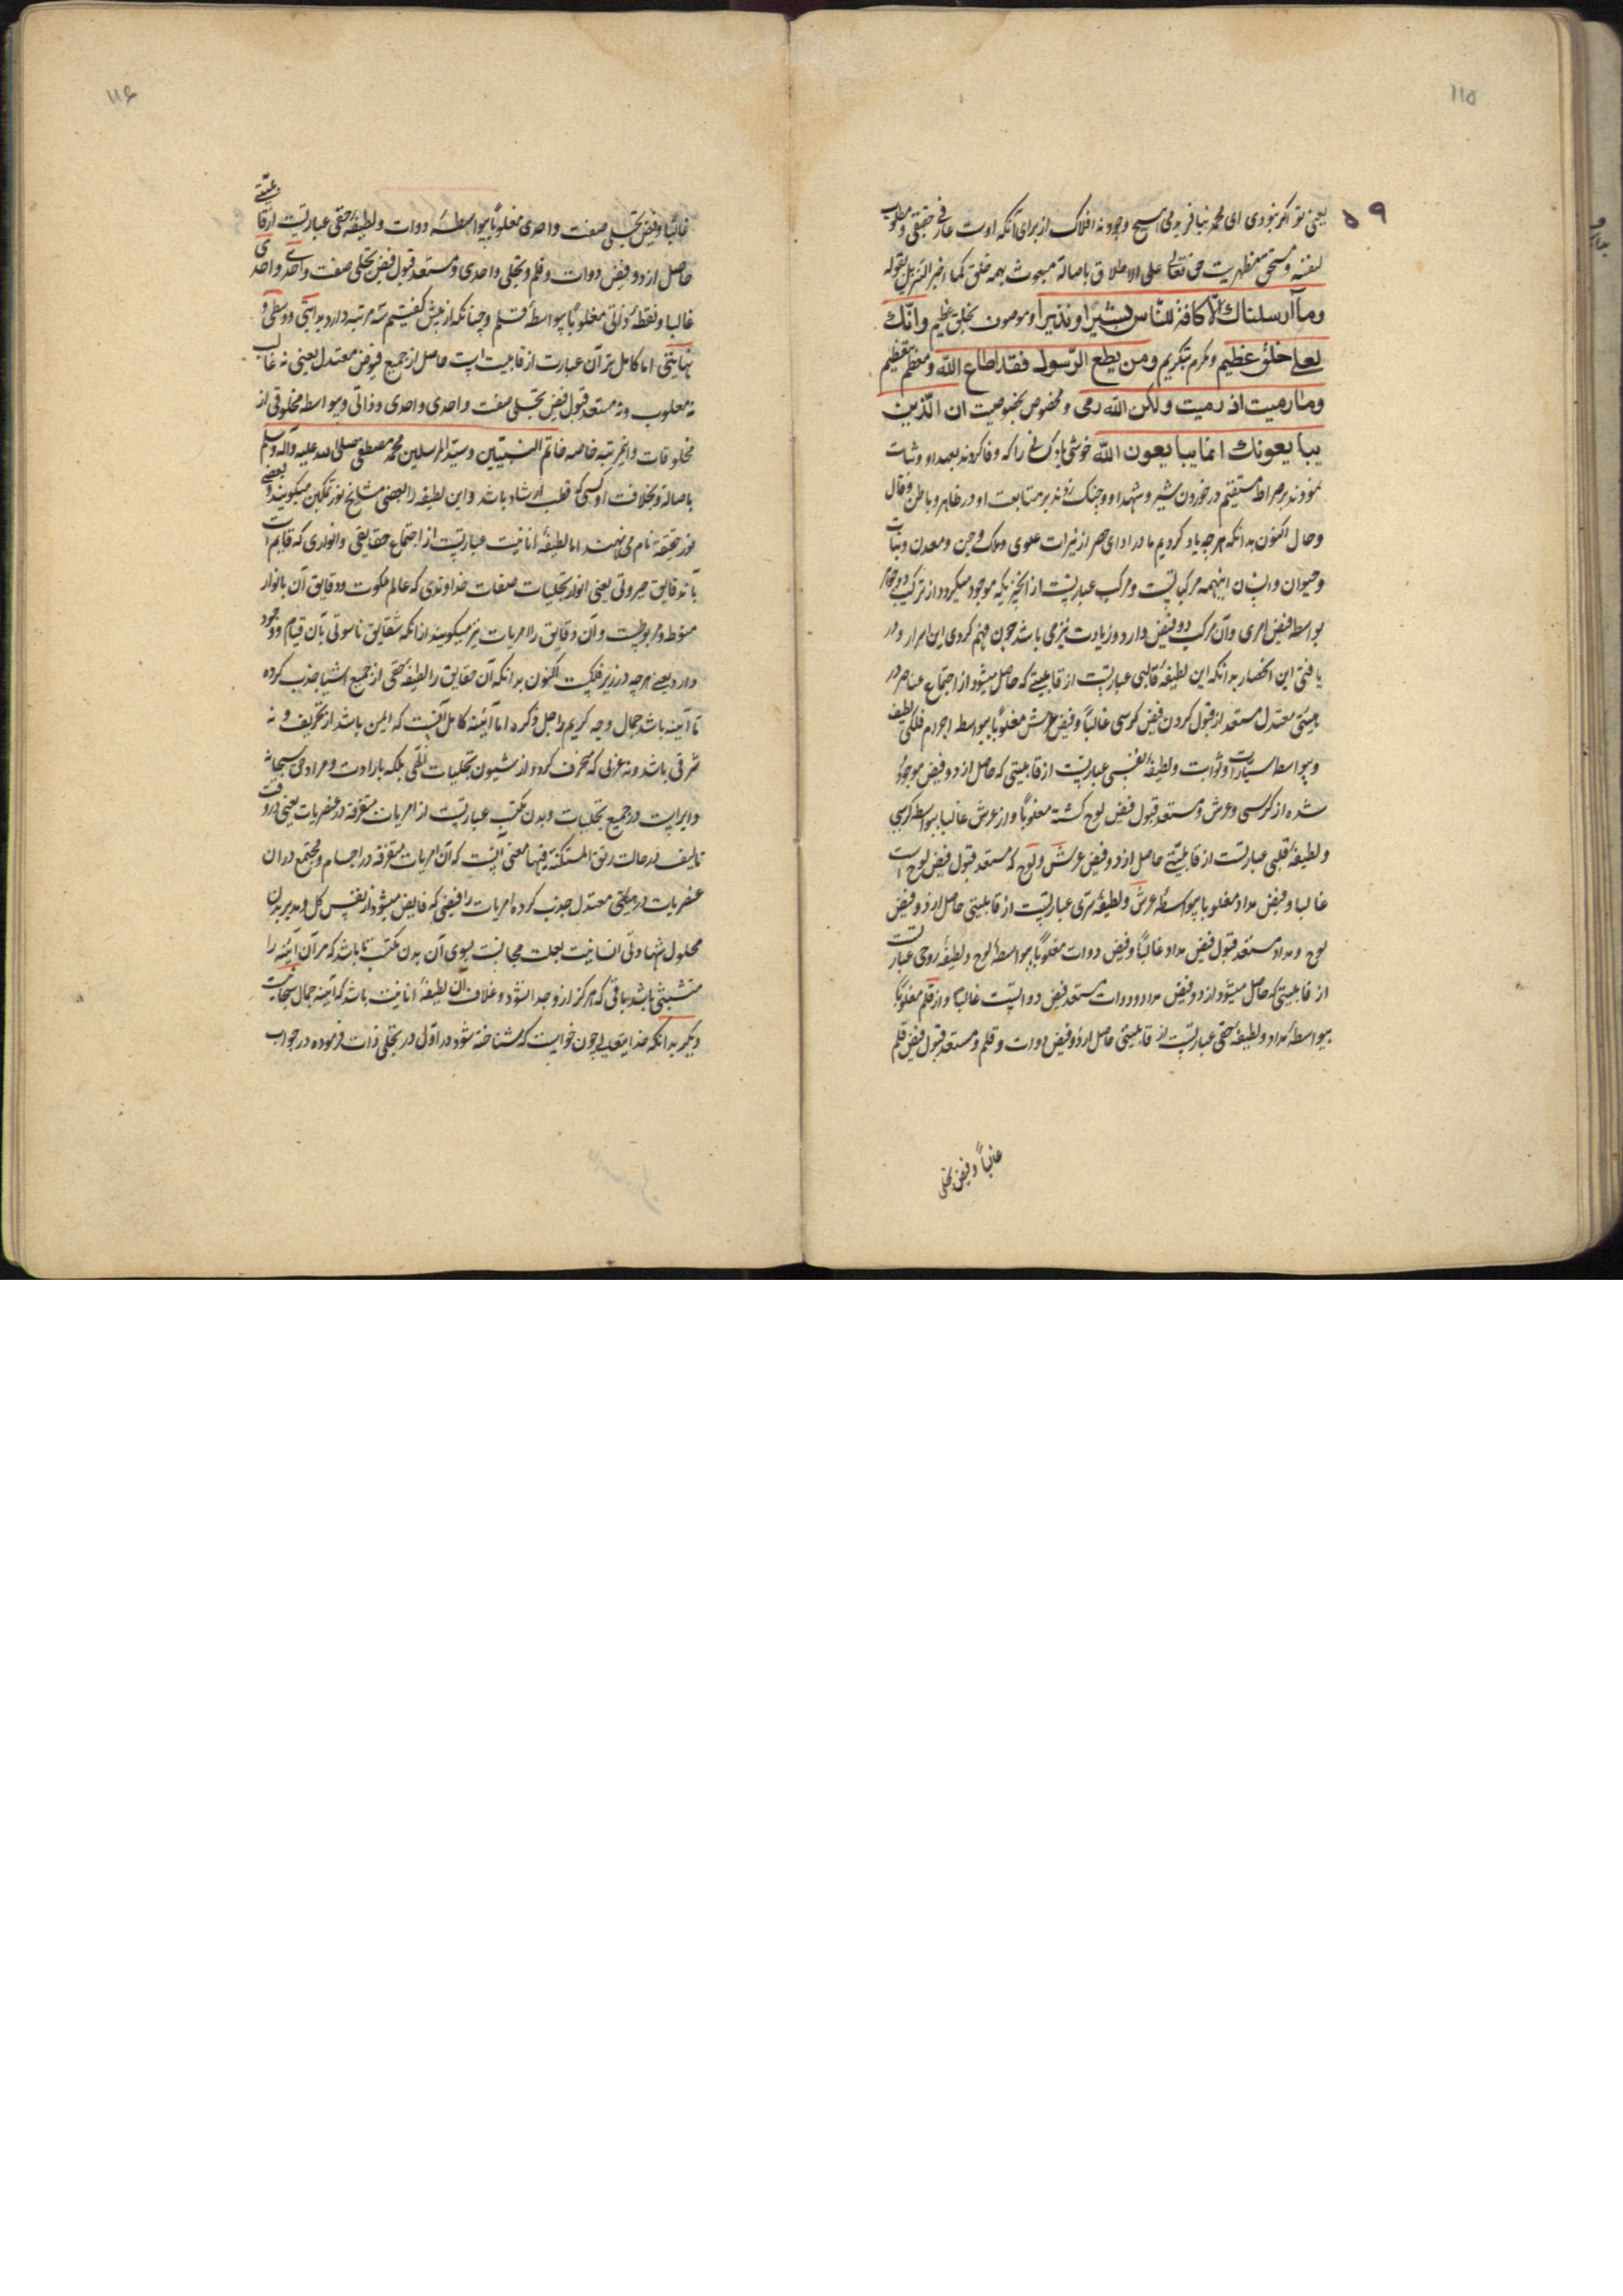 ۱۱۵
۵۹
یعنی تو اگر نبودی ای محمد نیافریدمی هیچ وجود نه افلاک از برای آنکه اوست عارف حقیقی و مطلوب
لنفسه و مستحق مظهریت حق تعالی علی الاطلاق باصالة مبعوث بهمه خلق کما اخبر التنزیل بقوله
وما آرسلناك الّا کافة للنّاس بشیرًا ونذیرا و موصوف بخلق عظیم وانّك
لعلی خلق عظیم و مکرم بتکریم ومن یطع الرّسول فقد اطاع الله و معظم بتعظیم
وما رمیت اذ رمیت ولکن الله رمی و مخصوص بخصوصیت ان الّذین
یبایعونك انما یبایعون الله خوشی باد کسانی را که وفا کردند بعهد او و ثبات
نمودند بر صراط مستقیم در خوردن شیر و شهد او و چنگ زدند بر متابعت او در ظاهر و باطن و قال
و حال اکنون بدانکه هرچه یاد کردیم ما در ادای حصر از نیرات علوی و ملک و جن و معدن و نبات
و حیوان و انسان اینهمه مرکباتست و مرکب عبارتست از آنچیزیکه موجود میگردد از ترکیب دو جوهر
بواسطه فیض امری و آن مرکب دو فیض دارد و زیادت نیز می باشد چون فهم کردی این اسرار و در
یافتی این انحصار بدانکه این لطیفهٔ قالبی عبارتست از قابلیتی که حاصل میشود از اجتماع عناصر در
هیئتی معتدل مستعد از قبول کردن فیض کرسی غالباً و فیض عرش مغلوباً بیواسطه اجرام فلکی لطیف
و بیواسطه سیارات و ثوابت و لطیفهٔ نفسی عبارتست از قابلیتی که حاصل از دو فیض موجود
شده از کرسی و عرش و مستعد قبول فیض لوح گشته مغلوباً و از عرش غالبا بیواسطه کرسی
و لطیفهٔ قلبی عبارتست از قابلیتی حاصل از دو فیض عرش و لوح که مستعد قبول فیض لوح است
غالبا و فیض مداد مغلوبا بیواسطهٔ عرش و لطیفهٔ سری عبارتست از قابلیتی حاصل از دو فیض
لوح و مداد مستعد قبول فیض مداد غالباً و فیض دوات مغلوباً بیواسطهٔ لوح و لطیفهٔ روحی عبارتست
از قابلیتی که حاصل میشود از دو فیض مداد و دوات مستعد فیض دواتست غالباً و از قلم مغلوباً
بیواسطهٔ مداد و لطیفهٔ خفی عبارتست از قابلیتی حاصل از دو فیض دوات و قلم و مستعد قبول فیض قلم
غالباً و فیض تجلی
۱۱۶
غالباً و فیض تجلی صفت واحدی مغلوباً بیواسطهٔ دوات و لطیفهٔ حقی عبارتست از قابلیتی
حاصل از دو فیض دوات و قلم و تجلی واحدی و مستعد قبول فیض تجلی صفت واحدی و احدی
غالبا و نقطهٔ ذاتی مغلوباً بیواسطهٔ قلم و چنانکه از پیش گفتیم سه مرتبه دارد بدایتی و وسطی و
نهایتی اما کامل تر آن عبارت از قابلیت است حاصل از جمیع فیوض معتدل یعنی نه غالب
نه مغلوب و نه مستعد قبول فیض تجلی صفت واحدی و احدی و ذاتی و بیواسطه مخلوقی از
مخلوقات و این مرتبه خاصه خاتم النبیّین و سیّد المرسلین محمد مصطفی صلی الله علیه وآله وسلم
باصالة و بخلافت او کسی که قطب ارشاد باشد و این لطیفه را بعضی مشایخ نور تمکین میگویند و بعضی
نور حقیقة نام می نهند اما لطیفهٔ انانیت عبارتست از اجتماع حقایقی و انواری که قایم است
بآن دقایق جبروتی یعنی انوار تجلیات صفات خداوندی که عالم ملکوت و دقایق آن بانوار
منوط و مربوطست و آن دقایق را امریات نیز میگویند از آنکه شقایق ناسوتی بآن قیام و وجود
دارد یعنی هرچه در زیر فلکست اکنون بدانکه آن حقایق را لطیفهٔ حقی از جمیع اشیا جذب کرده
تا آینه باشد جمال وجه کریم را جل ذکره اما آئینهٔ کامل آنست که ایمن باشد از تحریف و نه
شرقی باشد و نه غربی که منحرف گردد از شیون تجلیات الٰهی بلکه بارادت و مراد حق سبحانه
دایر است در جمیع تجلیات و بدن مکتسب عبارتست از امریات متفرقه در عنصریات یعنی در وقت
تالیف در حالت رتق المستکنة فیها معنی آنست که آن امریات متفرقه در اجسام و مجتمع در آن
عنصریات در هیئتی معتدل جذب کرده امریات را فیضی که فایض میشود از نفس کل و مدبر بدن
محلول شهادتی انسانیت بعلت مجانست بسوی آن بدن مکتسب تا باشد که مر آن آئینه را
متشبثی باشد باقی که هرگز از و جدا نشود و غلاف آن لطیفهٔ انانیت باشد که آئینهٔ جمال سبحانیست
دیگر بدانکه خدایتعالی چون خواست که شناخته شود در اول در تجلی ذات فرموده در جواب